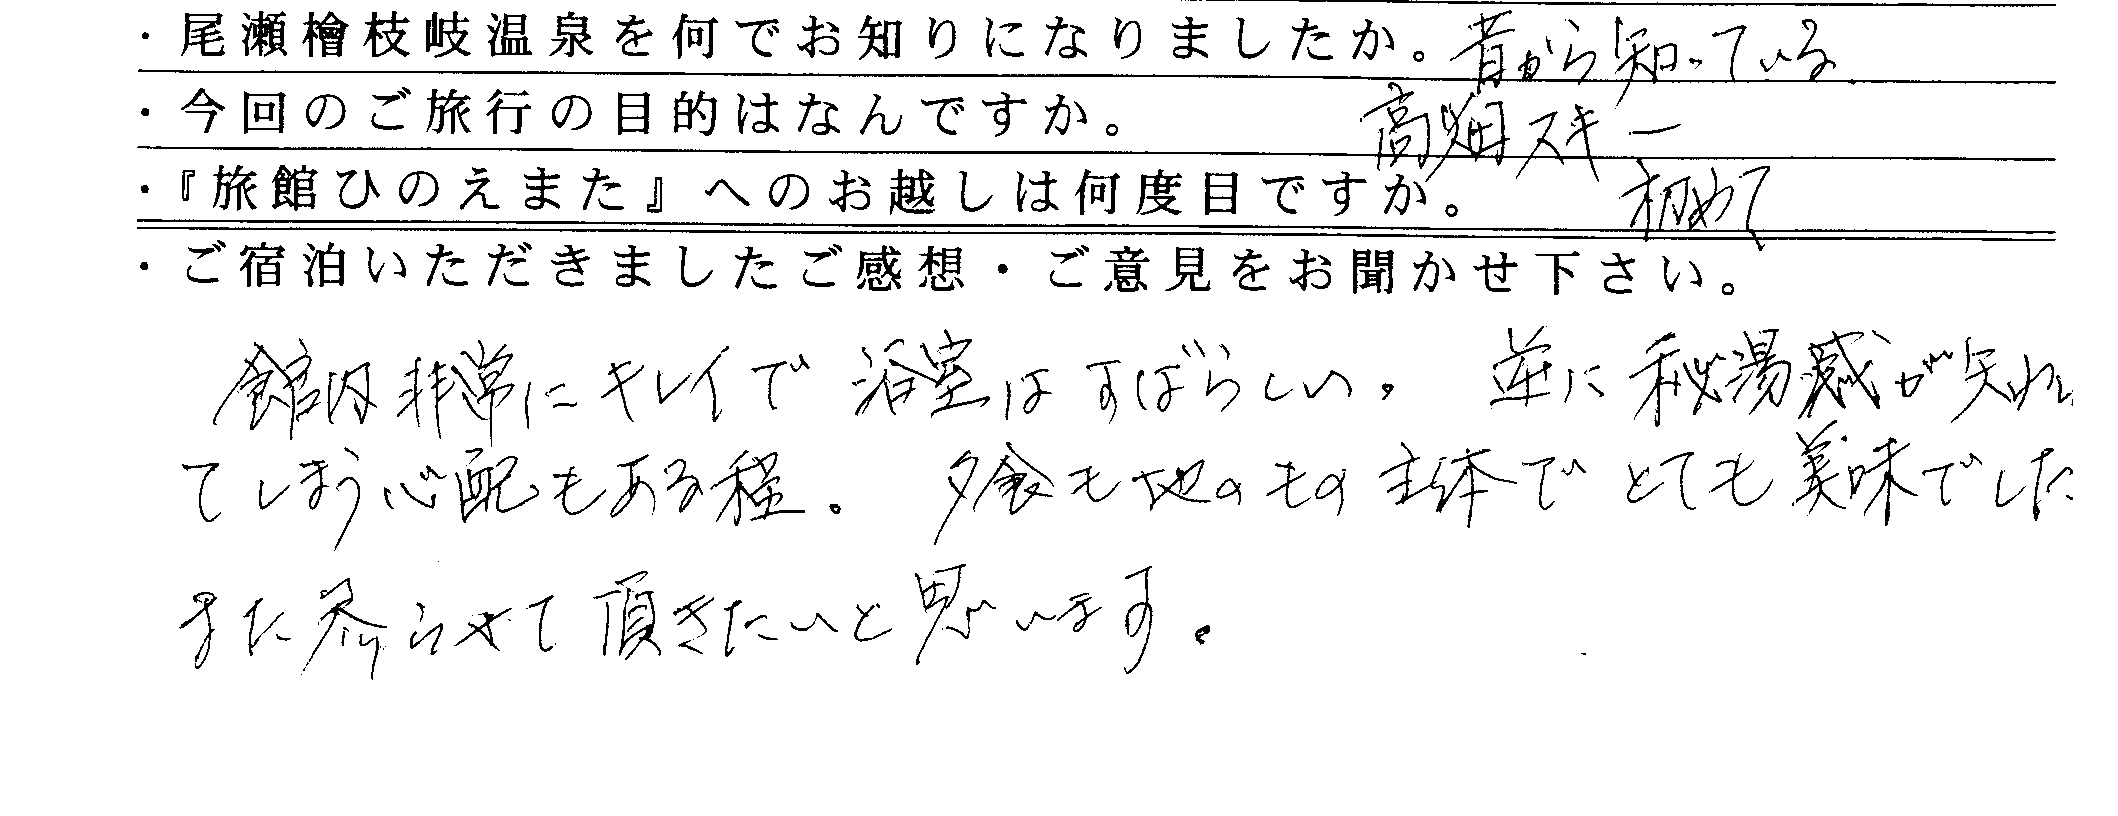 ・尾瀬檜枝岐温泉を何でお知りになりましたか。昔から知っている
・今回のご旅行の目的はなんですか。高畑スキー
・『旅館ひのえまた』へのお越しは何度目ですか。初めて
・ご宿泊いただきましたご感想・ご意見をお聞かせ下さい。
館内非常にキレイで浴室はすばらしい。逆に秘湯感が失われ
てしまう心配もある程。夕食も地のもの主体でとても美味でした
また参らせて頂きたいと思います。